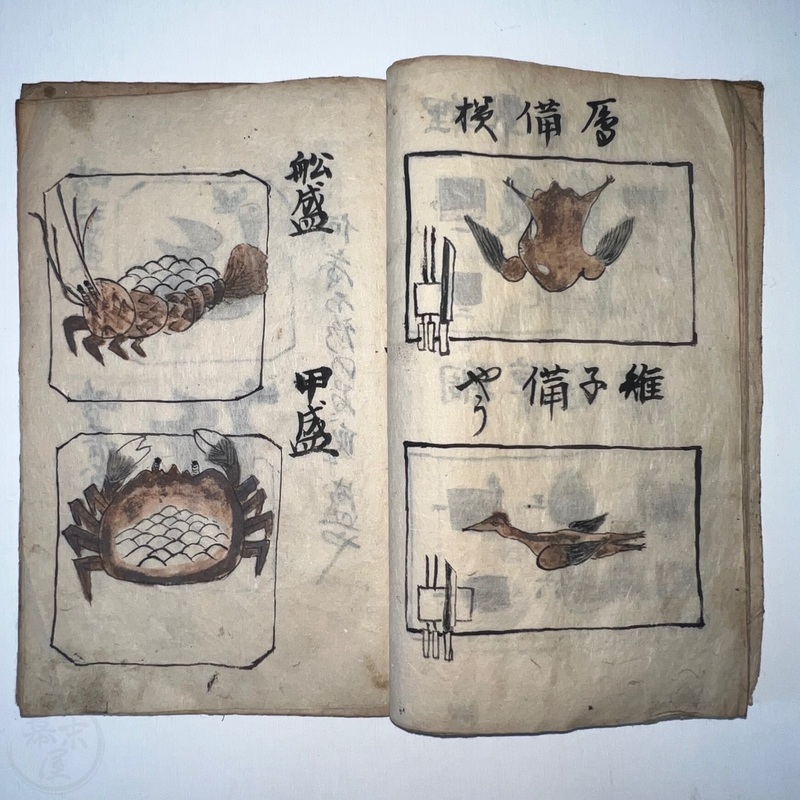 鴈備様
雉子備やう
舩盛
甲盛